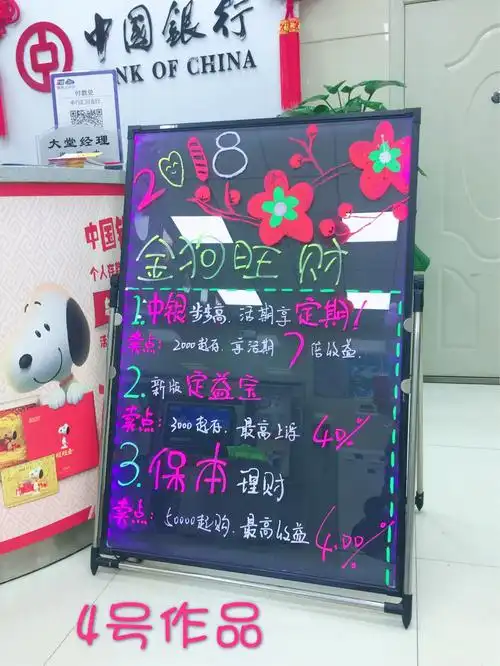 中国銀行
BANK OF CHINA
付款处
大堂经理
中国
个人存
2018
金狗旺财
1.中银步步高，活期享定期！
卖点：2000起存，享活期7倍收益.
2.新版定益宝
卖点：3000起存，最高上浮40%
3.保本理财
卖点：50000起购，最高收益4.00%
4号作品